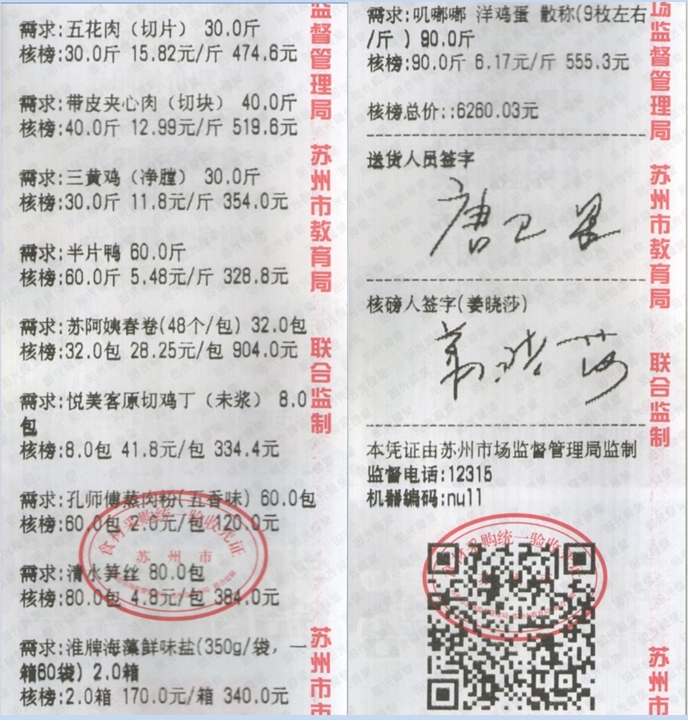 需求:五花肉（切片） 30.0斤
核榜:30.0斤 15.82元/斤 474.6元
需求:带皮夹心肉（切块） 40.0斤
核榜:40.0斤 12.99元/斤 519.6元
需求:三黄鸡（净膛） 30.0斤
核榜:30.0斤 11.8元/斤 354.0元
需求:半片鸭 60.0斤
核榜:60.0斤 5.48元/斤 328.8元
需求:苏阿姨春卷(48个/包) 32.0包
核榜:32.0包 28.25元/包 904.0元
需求:悦美客原切鸡丁（未浆） 8.0
包
核榜:8.0包 41.8元/包 334.4元
需求:孔师傅蒸肉粉(五香味) 60.0包
核榜:60.0包 2.0元/包 120.0元
需求:清水笋丝 80.0包
核榜:80.0包 4.8元/包 384.0元
需求:淮牌海藻鲜味盐(350g/袋，一
箱60袋) 2.0箱
核榜:2.0箱 170.0元/箱 340.0元
食材采购统一验收凭证
苏州市
监督管理局
苏州市教育局
联合监制
苏州市市
需求:叽嘟嘟 洋鸡蛋 散称(9枚左右
/斤 ) 90.0斤
核榜:90.0斤 6.17元/斤 555.3元
核榜总价::6260.03元
送货人员签字
核磅人签字(姜晓莎)
本凭证由苏州市场监督管理局监制
监督电话:12315
机器编码:null
食材采购统一验收凭证
场监督管理局
苏州市教育局
联合监制
苏州市